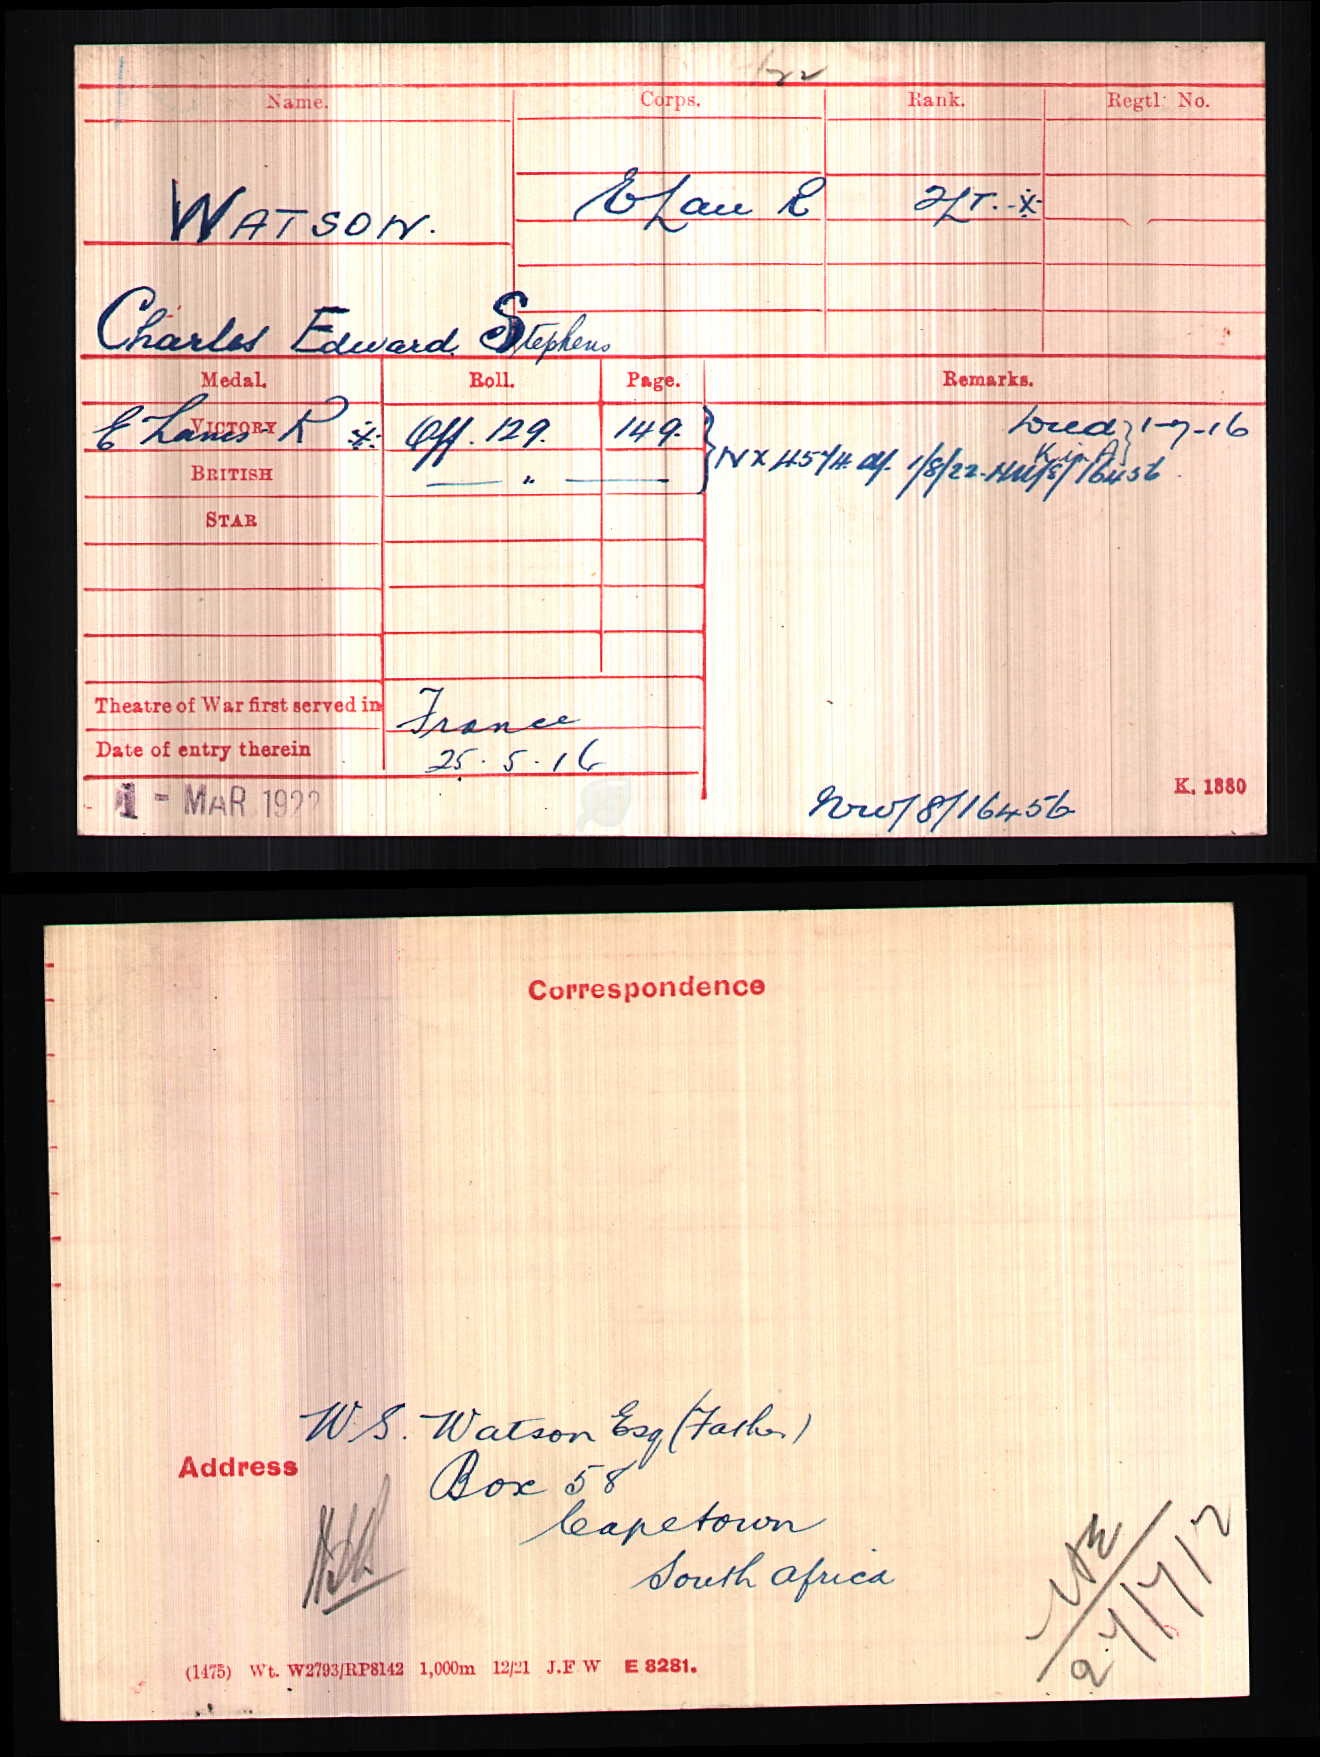 Name. Corps. Rank. Regtl. No.
WATSON. E Lan R 2/LT. ※
Charles Edward Stephens
Medal. Roll. Page. Remarks.
VICTORY E Lancs R ※ Off. 129. 149. Dead } 1-7-16
K in A
BRITISH — " — NX 4574 df. 1/8/22 - NW/8/16456
STAR
Theatre of War first served in France
Date of entry therein 25.5.16
1 - MAR 1922
K. 1380
NW/8/16456
Correspondence
W. S. Watson Esq (Father)
Address
Box 58
Capetown
South Africa
(1475) Wt. W2793/RP8142 1,000m 12/21 J.F.W E 8281.